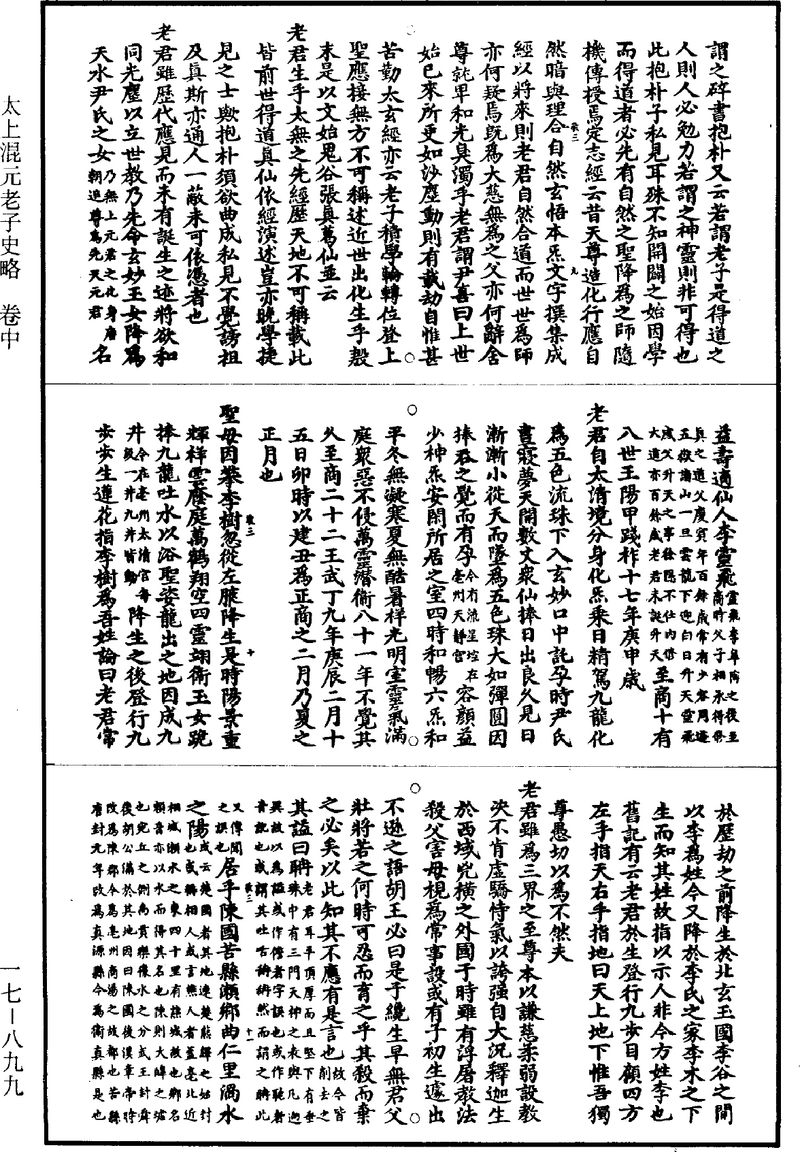 太上混元老子史略　卷中
一七－八九九
謂之碎書抱朴又云若謂老子是得道之
人則人必勉力若謂之神靈則非可得也
此抱朴子私見耳殊不知開闢之始因學
而得道者必先有自然之聖降為之師隨
機傳授焉定志經云昔天尊造化行應自
然暗與理合自然玄悟本炁文字撰集成
經以將來則老君自然合道而世世為師
亦何疑焉既為大慈無為之父亦何辭舍
尊託卑和光臭濁乎老君謂尹喜曰上世
始已來所更如沙塵動則有載劫自惟甚
苦勤太玄經亦云老子積學輪轉位登上
聖應接無方不可稱述近世出化生乎殷
末是以文始鬼谷張真葛仙並云
老君生乎太無之先經歷天地不可稱載此
皆前世得道真仙依經演述豈亦晚學捷
見之士歟抱朴須欲曲成私見不覺謗祖
及真斯亦通人一蔽未可依憑者也
老君雖歷代應見而未有誕生之迹將欲和
同光塵以立世教乃先命玄妙玉女降為
天水尹氏之女乃無上元君之化身唐朝追尊為先天元君名
益壽適仙人李靈飛
至商十有
八世王陽甲踐祚十七年庚申歲
老君自太清境分身化炁乘日精駕九龍化
為五色流珠下入玄妙口中託孕時尹氏
晝寢夢天開數丈衆仙捧日出良久見日
漸漸小從天而墜為五色珠大如彈圓因
捧吞之覺而有孕今有流星垣在亳州天靜宮容顏益
少神炁安閑所居之室四時和暢六炁和
平冬無凝寒夏無酷暑祥光明室靈氣滿
庭衆惡不侵萬靈潛衛八十一年不覺其
久至商二十二王武丁九年庚辰二月十
五日卯時以建丑為正商之二月乃夏之
正月也
聖母因攀李樹忽從左腋降生是時陽景重
輝祥雲廕庭萬鶴翔空四靈翊衛玉女跪
捧九龍吐水以浴聖姿龍出之地因成九
井今在亳州太清宮每汲一井九井皆動降生之後登行九
步步生蓮花指李樹為吾姓論曰老君常
於歷劫之前降生於北玄玉國李谷之間
以李為姓今又降於李氏之家李木之下
生而知其姓故指以示人非今方姓李也
舊記有云老君於生登行九步目顧四方
左手指天右手指地曰天上地下惟吾獨
尊愚切以為不然夫
老君雖為三界之至尊本以謙慈柔弱設教
決不肯虛驕恃氣以誇強自大況釋迦生
於西域兇橫之外國于時雖有浮屠教法
殺父害母視為常事設或有子初生遽出
不遜之語胡王必曰是子纔生早無君父
壯將若之何時可忍而育之乎其殺而棄
之必矣以此知其不應有是言也故今皆削去之
其謚曰聃
居乎陳國苦縣瀨鄉曲仁里渦水
之陽